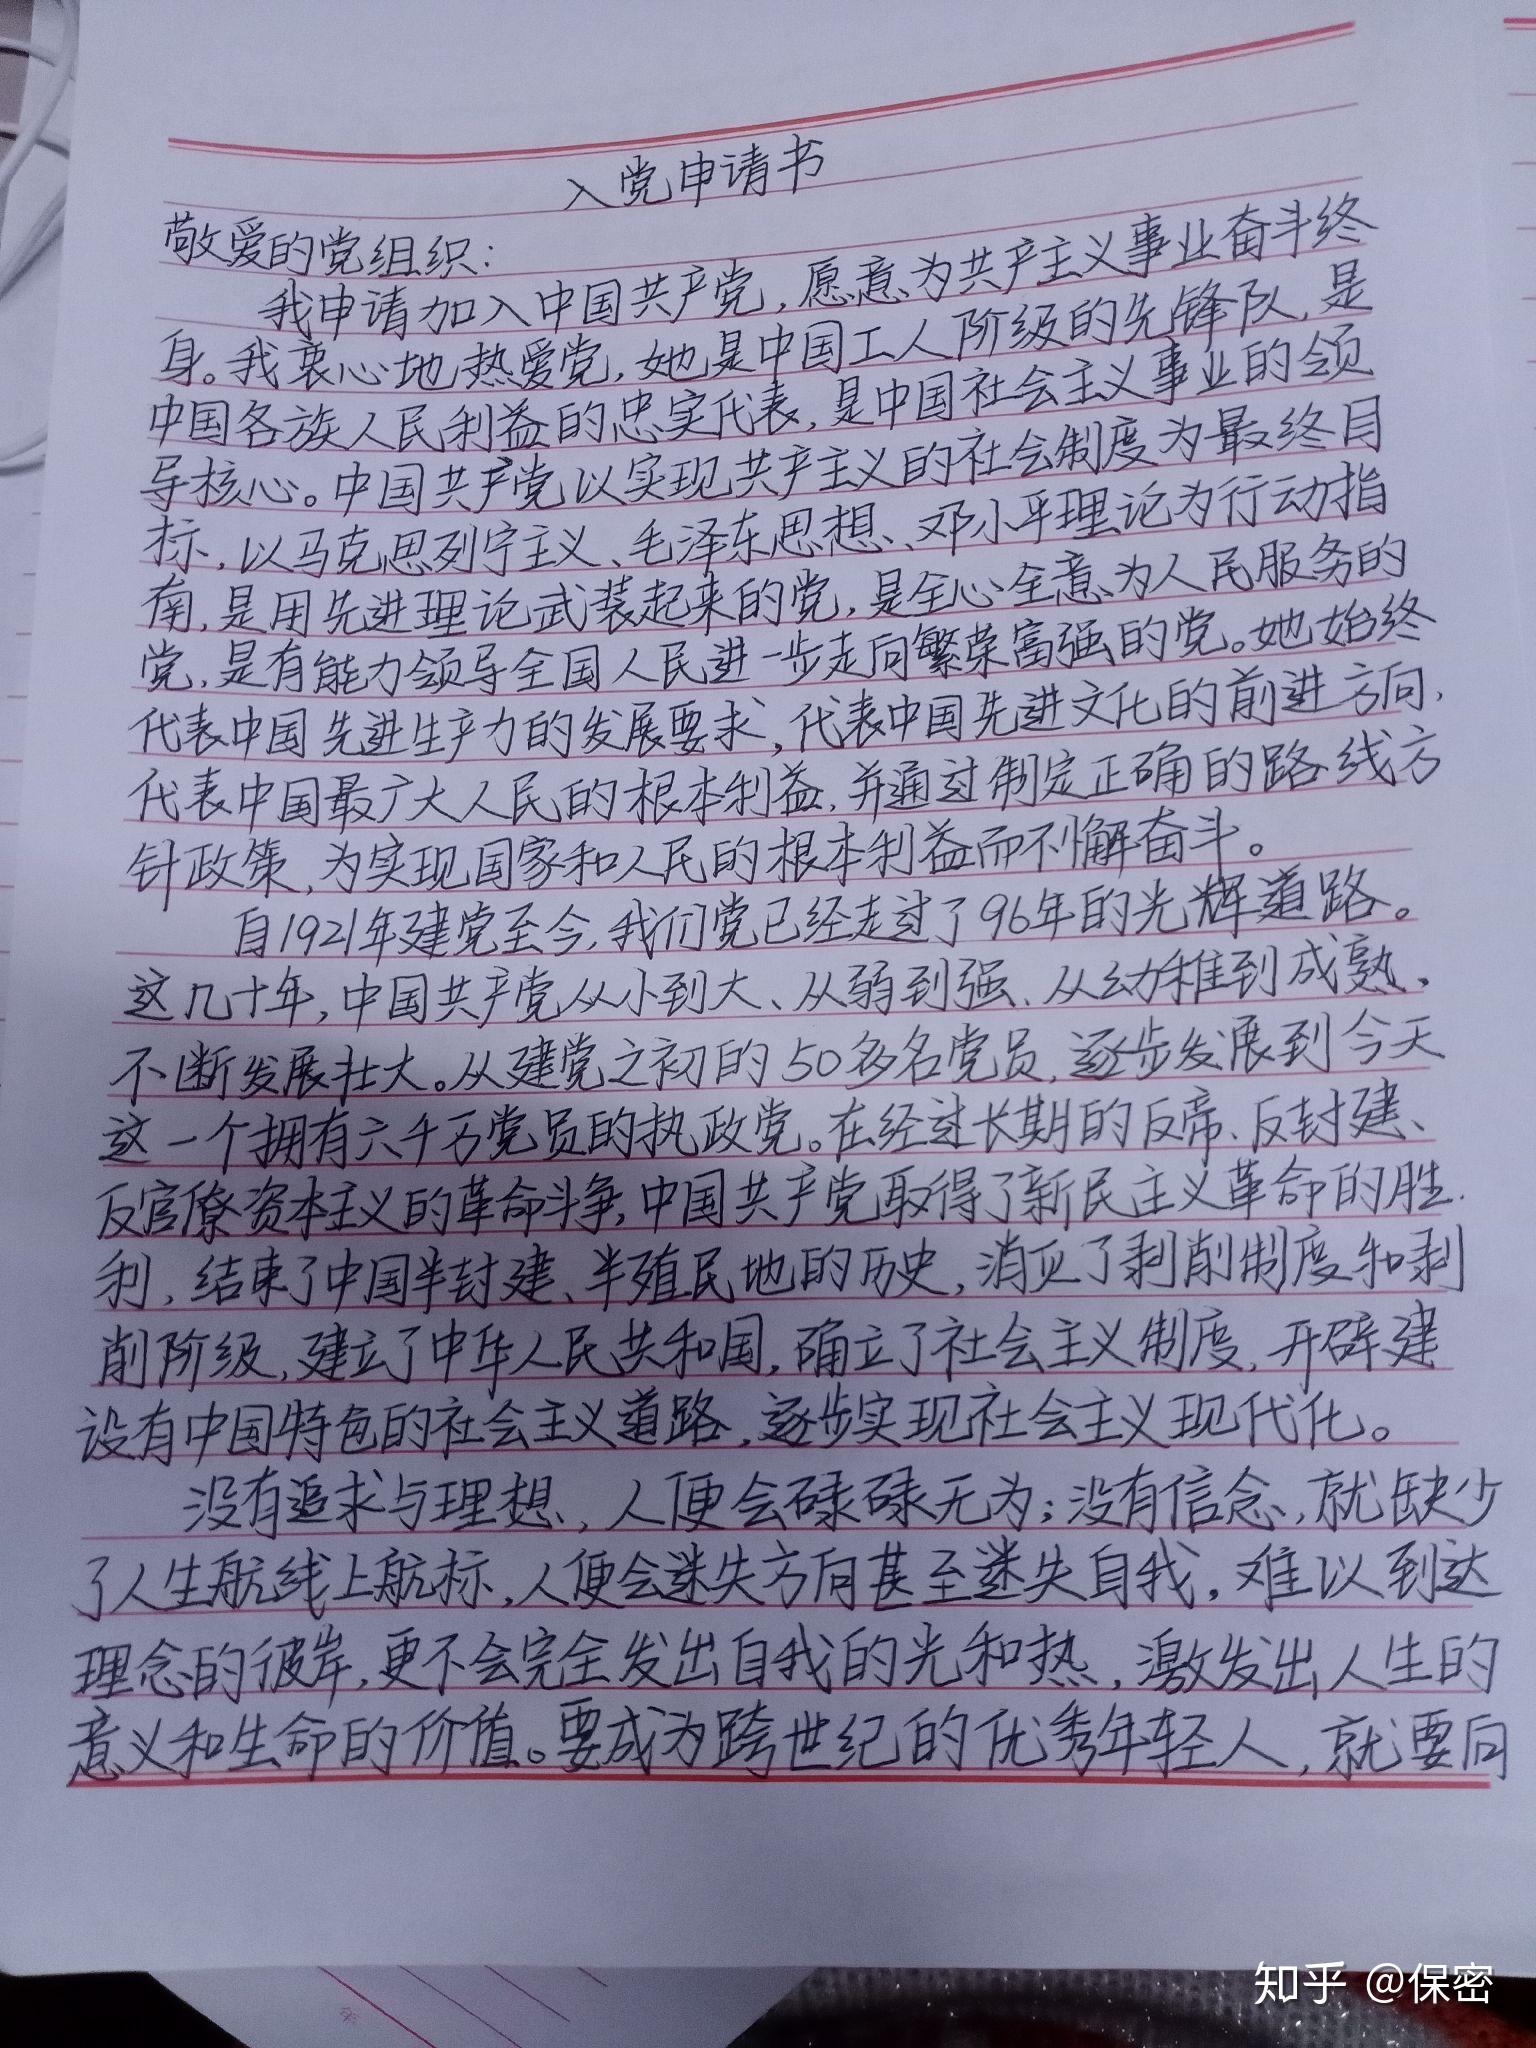 入党申请书
敬爱的党组织：
我申请加入中国共产党，愿意为共产主义事业奋斗终
身。我衷心地热爱党，她是中国工人阶级的先锋队，是
中国各族人民利益的忠实代表，是中国社会主义事业的领
导核心。中国共产党以实现共产主义的社会制度为最终目
标，以马克思列宁主义、毛泽东思想、邓小平理论为行动指
南，是用先进理论武装起来的党，是全心全意为人民服务的
党，是有能力领导全国人民进一步走向繁荣富强的党。她始终
代表中国先进生产力的发展要求，代表中国先进文化的前进方向，
代表中国最广大人民的根本利益，并通过制定正确的路线方
针政策，为实现国家和人民的根本利益而不懈奋斗。
自1921年建党至今，我们党已经走过了96年的光辉道路。
这几十年，中国共产党从小到大、从弱到强、从幼稚到成熟，
不断发展壮大。从建党之初的50多名党员，逐步发展到今天
这一个拥有六千万党员的执政党。在经过长期的反帝、反封建、
反官僚资本主义的革命斗争，中国共产党取得了新民主义革命的胜
利，结束了中国半封建、半殖民地的历史，消灭了剥削制度和剥
削阶级，建立了中华人民共和国，确立了社会主义制度，开辟建
设有中国特色的社会主义道路，逐步实现社会主义现代化。
没有追求与理想，人便会碌碌无为；没有信念，就缺少
了人生航线上航标，人便会迷失方向甚至迷失自我，难以到达
理念的彼岸，更不会完全发出自我的光和热，激发出人生的
意义和生命的价值。要成为跨世纪的优秀年轻人，就要向
知乎 @保密